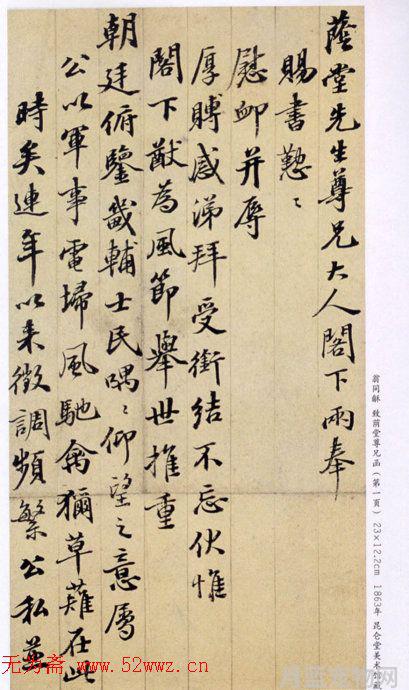 蔭堂先生尊兄大人閣下兩奉
賜書懃〻
慰卹并辱
厚賻感涕拜受銜結不忘伏惟
閣下猷為風節舉世推重
朝廷俯鑒畿輔士民喁〻仰望之意屬
公以軍事電掃風馳禽獮草薙在此
時矣連年以來徵調頻繁公私
翁同龢 致荫堂尊兄函（第一页） 23×12.2cm 1863年 昆仑堂美术馆藏
无为斋 www.52wwz.cn